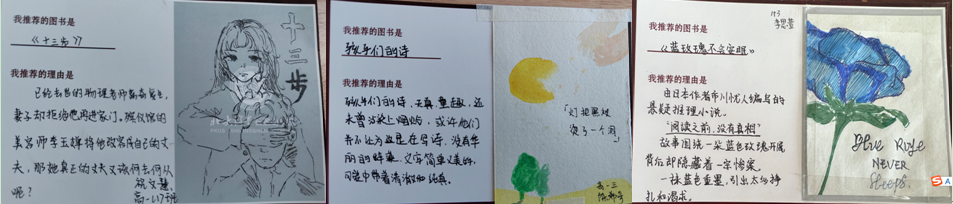 我推荐的图书是
《十三步》
我推荐的理由是
已经去世的物理老师离奇复生，
妻子却拒绝他再进家门。殡仪馆的
美容师李玉婵将他改容成自己的丈
夫，那她真正的丈夫又该何去何从
呢？
高一(17)班
十三步
我推荐的图书是
孩子们的诗
我推荐的理由是
孩子们的诗，天真、童趣，还
未曾被
或许他们
并不认为这是在写诗，没有华
丽的辞藻，文字简单
可是中带着清澈和纯真。
灯把黑夜
烫了一个洞
高一三
我推荐的图书是
《蓝玫瑰不会安眠》
我推荐的理由是
由日本作者市川忧人编写的
悬疑推理小说。
“阅读之前，没有真相”
故事围绕一朵蓝色玫瑰开展，
背后却隐藏着一宗惨案。
一抹蓝色重墨，引出太多挣
扎和渴求。
Blue Rose
NEVER
Sleeps.